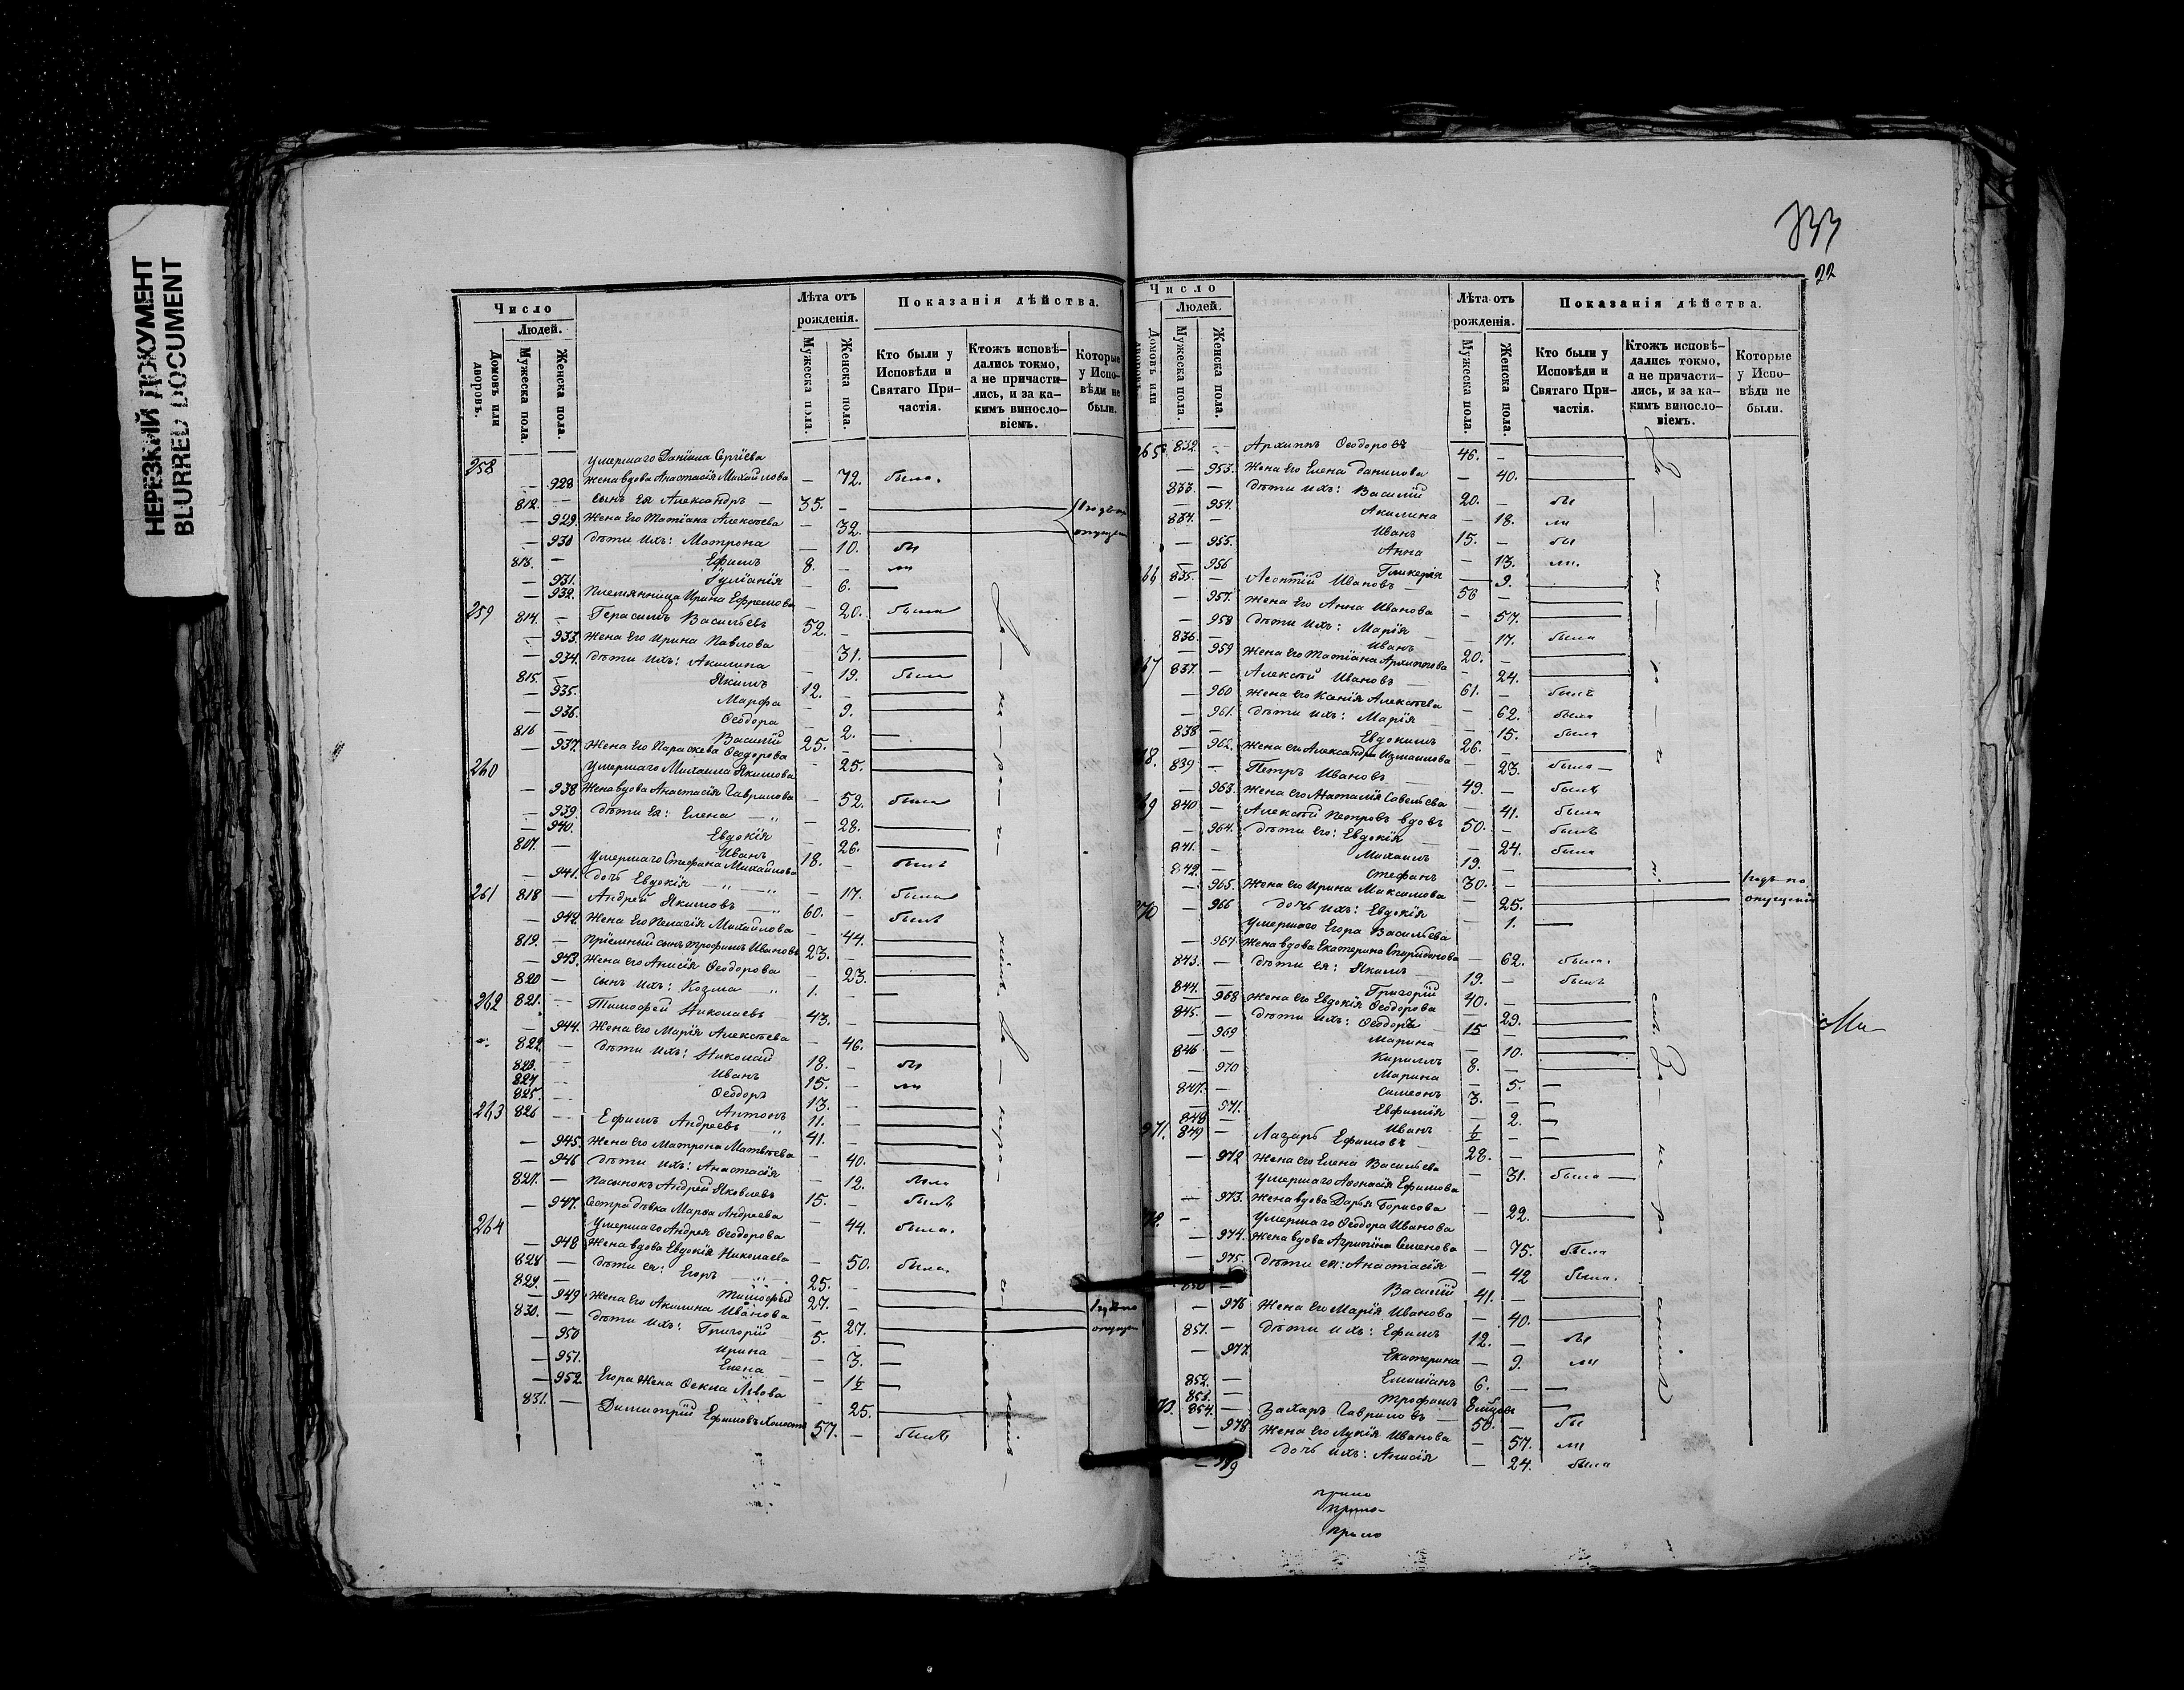 НЕРЕЗКИЙ ДОКУМЕНТ
BLURRED DOCUMENT
Число
Людей.
Домовъ или дворовъ.
Мужеска пола.
Женска пола.
Лѣта отъ рожденія.
Мужеска пола.
Женска пола.
Показанія дѣйства.
Кто были у Исповѣди и Святаго Причастія.
Ктожъ исповѣдались токмо, а не причастились, и за какимъ винословіемъ.
Которые у Исповѣди не были.
258 умершаго Даніила Сергіева
— 928 жена вдова Анастасія Михайлова — 72. была.
812. — сынъ ея Александръ — 35. —
— 929. Жена его Татіана Алексѣева — 32.
— 930 дѣти ихъ: Матрона — 10. бы
813. — Ефимъ 8. — ли
— 931. Іуліанія — 6. —
— 932. Племянница Ирина Ефремова — 20. была
259 814. — Герасимъ Васильевъ 52. —
— 933. Жена его Ирина Павлова 31.
— 934. дѣти ихъ: Акилина — 19. была
815. — Якимъ 12. —
— 935. Марфа — 9.
— 936. Ѳеодора — 2. —
816 — Василій 25. —
— 937. Жена его Параскева Ѳеодорова — 25.
260 умершаго Михаила Якимова
— 938 Жена вдова Анастасія Гаврилова — 52. была
— 939. дѣти ея: Елена — 28.
— 940. Евдокія — 26.
817. — Иванъ 18. — былъ
умершаго Стефана Михайлова
— 941. дочь Евдокія — 17. была
261 818 — Андрей Якимовъ 60. — былъ
— 942. Жена его Пелагія Михайлова — 44.
819. — Пріемный сынъ Трофимъ Ивановъ 23. —
— 943. Жена его Анисія Ѳеодорова — 23.
820 — сынъ ихъ: Козма 1. —
262 821. — Тимофей Николаевъ 43. —
— 944. Жена его Марія Алексѣева — 46.
822. — дѣти ихъ: Николай 18. — бы
823. — Иванъ 15. — ли
824 — Ѳеодоръ 13. —
825. — Антонъ 11. —
263 826 — Ефимъ Андреевъ 41. —
— 945. Жена его Матрона Матвѣева — 40.
— 946 дѣти ихъ: Анастасія — 12. была
827. — Пасынокъ Андрей Яковлевъ 15. — былъ
— 947. Сестра дѣвка Марѳа Андреева — 44. была.
264 умершаго Андрея Ѳеодорова
— 948 Жена вдова Евдокія Николаева — 50. была.
828 — дѣти ея: Егоръ 25. —
829. — Тимофей 27. —
— 949 Жена его Акилина Иванова — 27.
830. — дѣти ихъ: Григорій 5. —
— 950 Ирина — 3. —
— 951. Елена — 1½ —
— 952. Егора жена Ѳекла Львова — 25.
831. — Димитрій Ефимовъ холостъ 57. — былъ
733
22
Число
Людей.
Домовъ или дворовъ.
Мужеска пола.
Женска пола.
Лѣта отъ рожденія.
Мужеска пола.
Женска пола.
Показанія дѣйства.
Кто были у Исповѣди и Святаго Причастія.
Ктожъ исповѣдались токмо, а не причастились, и за какимъ винословіемъ.
Которые у Исповѣди не были.
265 832. — Архиппъ Ѳеодоровъ 46. —
— 953. Жена его Елена Данилова — 40.
833. — дѣти ихъ: Василій 20. — бы
— 954. Акилина — 18. ли
834. — Иванъ 15. — бы
— 955. Анна — 13. ли.
— 956 Гликерія — 9.
66 835. — Леонтій Ивановъ 56 —
— 957. Жена его Анна Иванова — 57.
— 958 дѣти ихъ: Марія — 17. была
836. — Иванъ 20. —
— 959 Жена его Татіана Архиппова — 24.
67 837. — Алексѣй Ивановъ 61. — былъ
— 960 Жена его Ксенія Алексѣева — 62. была
— 961. дѣти ихъ: Марія — 15. была
838 — Евдокимъ 26. —
— 962. Жена его Александра Измаилова — 23. была —
68. 839 — Петръ Ивановъ 49. — былъ
— 963. Жена его Наталія Савельева — 41. была
269 840 — Алексѣй Петровъ вдовъ 50. — былъ
— 964. дѣти его: Евдокія — 24. была
841. — Михаилъ 19. —
842. — Стефанъ 30. —
— 965. Жена его Ирина Максимова — 25.
— 966 дочь ихъ: Евдокія — 1. —
270 умершаго Егора Васильева
— 967. Жена вдова Екатерина Спиридонова — 62. была.
843. — дѣти ея: Якимъ 19. — былъ
844. — Григорій 40. —
— 968 Жена его Евдокія Ѳеодорова — 29.
845. — дѣти ихъ: Ѳеодоръ 15 —
— 969 Марина — 10.
846 — Кириллъ 8. —
— 970 Марина — 5. —
847. — Симеонъ 3. —
— 971. Евфимія — 2. —
848 — Иванъ ½ —
271. 849 — Лазарь Ефимовъ 28. —
— 972 Жена его Елена Васильева — 31. была —
умершаго Аѳонасія Ефимова
— 973. Жена вдова Дарья Борисова — 22.
72. — умершаго Ѳеодора Иванова
— 974. Жена вдова Агрипина Семенова — 75. была
— 975. дѣти ея: Анастасія — 42 была.
850 — Василій 41. —
— 976 Жена его Марія Иванова — 40.
851. — дѣти ихъ: Ефимъ 12. — бы
— 977. Екатерина — 9. ли
852. — Емиліанъ 6. — —
853. — Трофимъ
73. 854. — Захаръ Гавриловъ 50. — бы
— 978 Жена его Лукія Иванова — 57. ли
— 979 дочь ихъ: Анисія — 24. была